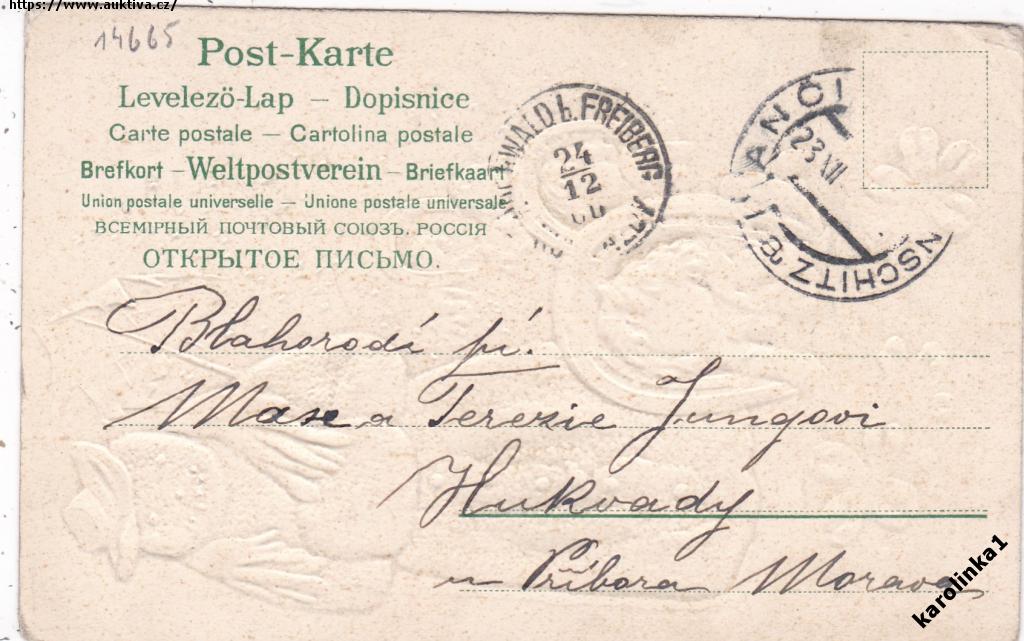 https://www.auktiva.cz/
14665
Post-Karte
Levelező-Lap – Dopisnice
Carte postale – Cartolina postale
Brefkort – Weltpostverein – Briefkaart
Union postale universelle – Unione postale universale
ВСЕМІРНЫЙ ПОЧТОВЫЙ СОЮЗЪ. РОССІЯ
ОТКРЫТОЕ ПИСЬМО.
WALD b. FREIBERG
24
12
ANČI
23 XII
NSCHITZ
Blahorodí pí.
Maxe a Terezie Jungovi
Hukvady
u Příbora Morava
karolinka1